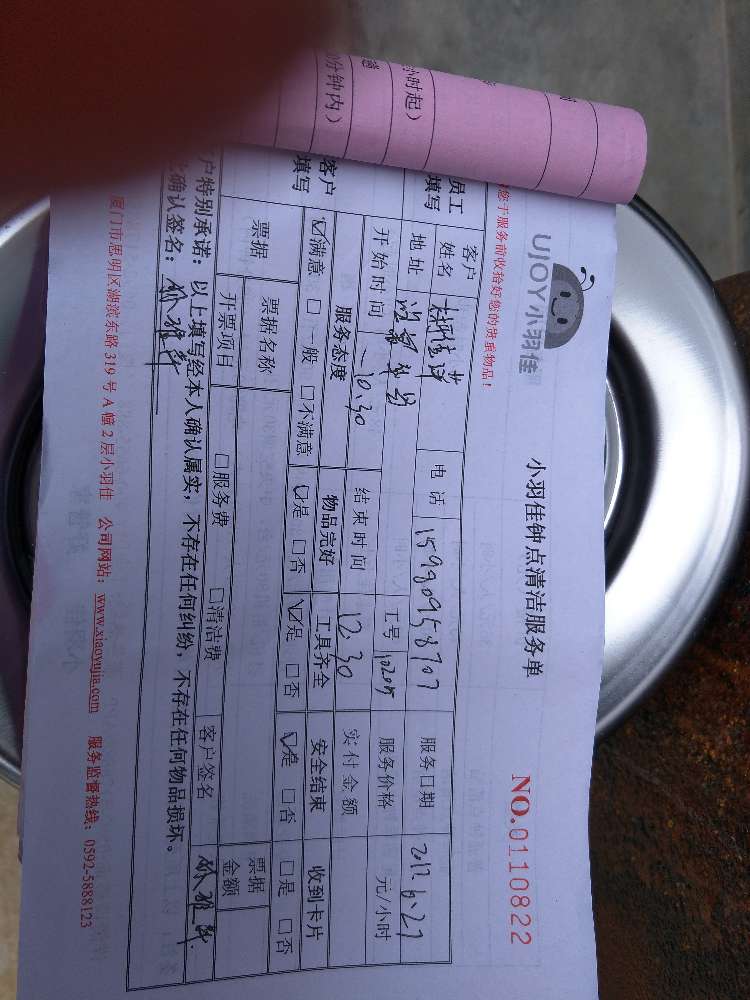 小时起）
0分钟内）
UJOY小羽佳
小羽佳钟点清洁服务单
NO.0110822
您于服务前收拾好您的贵重物品！
员工
填写
客户
姓名
电话 15980958707
服务日期
地址
工号
服务价格 元/小时
开始时间 10.30
结束时间 12 30
实付金额
客户
填写
服务态度 物品完好 工具齐全 安全结束 收到卡片
☑满意 □一般 □不满意 ☑是 □否 ☑是 □否 ☑是 □否 □是 □否
票据
票据名称
票据
金额
开票项目 □服务费 □清洁费 客户签名
户特别承诺：以上填写经本人确认属实，不存在任何纠纷，不存在任何物品损坏。
确认签名：
厦门市思明区湖滨东路319号A幢2层小羽佳 公司网站：www.xiaoyujia.com 服务监督热线：0592-5888123